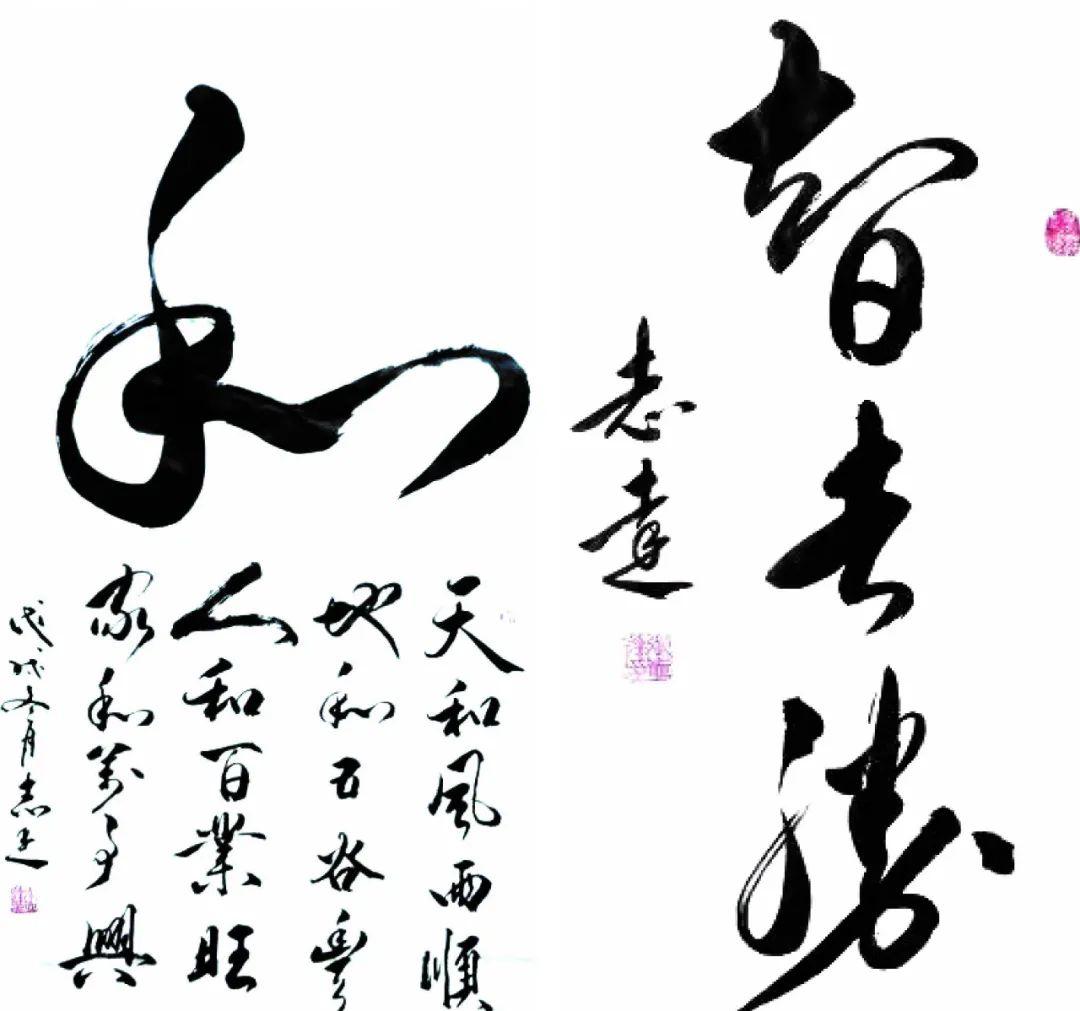 和
天和風雨順
地和五谷豐
人和百業旺
家和萬事興
戊戌冬月志達
智者勝
志達